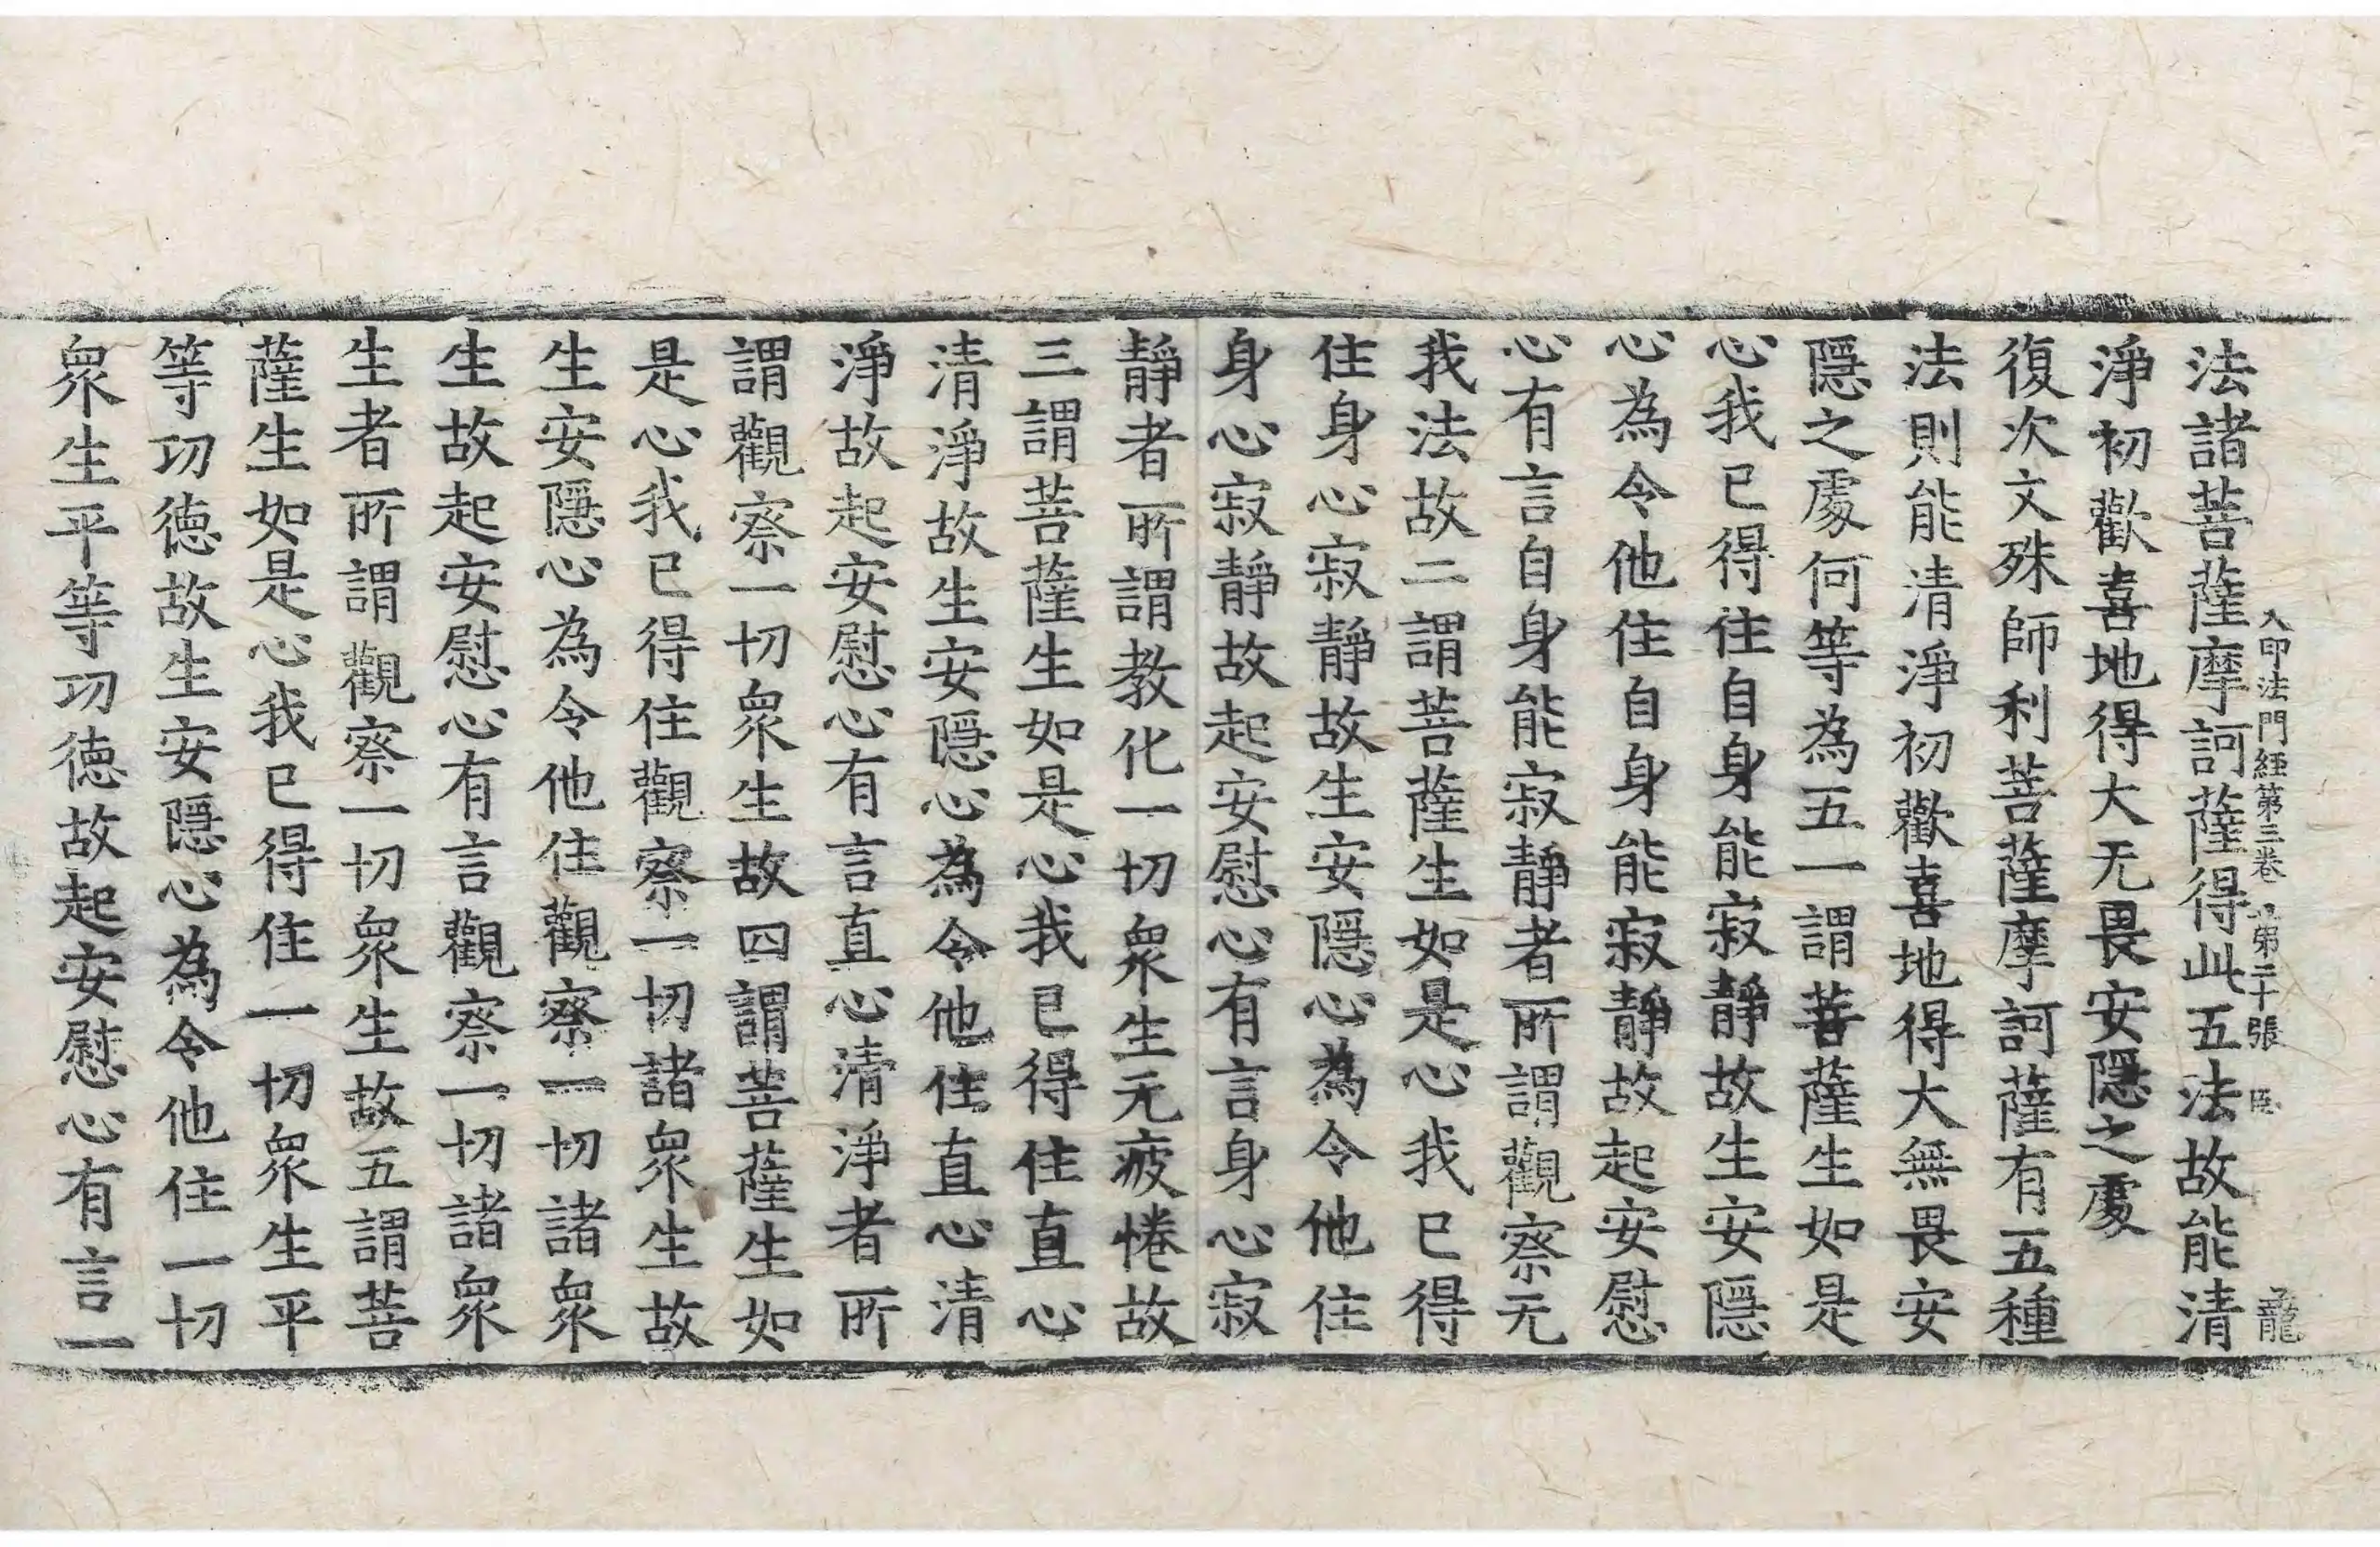 入印法門經第三卷 第二十張 龍
法諸菩薩摩訶薩得此五法故能清
淨初歡喜地得大无畏安隱之處
復次文殊師利菩薩摩訶薩有五種
法則能清淨初歡喜地得大無畏安
隱之處何等為五一謂菩薩生如是
心我已得住自身能寂靜故生安隱
心為令他住自身能寂靜故起安慰
心有言自身能寂靜者所謂觀察无
我法故二謂菩薩生如是心我已得
住身心寂靜故生安隱心為令他住
身心寂靜故起安慰心有言身心寂
靜者所謂教化一切衆生无疲惓故
三謂菩薩生如是心我已得住直心
清淨故生安隱心為令他住直心清
淨故起安慰心有言直心清淨者所
謂觀察一切衆生故四謂菩薩生如
是心我已得住觀察一切諸衆生故
生安隱心為令他住觀察一切諸衆
生故起安慰心有言觀察一切諸衆
生者所謂觀察一切衆生故五謂菩
薩生如是心我已得住一切衆生平
等功德故生安隱心為令他住一切
衆生平等功德故起安慰心有言一